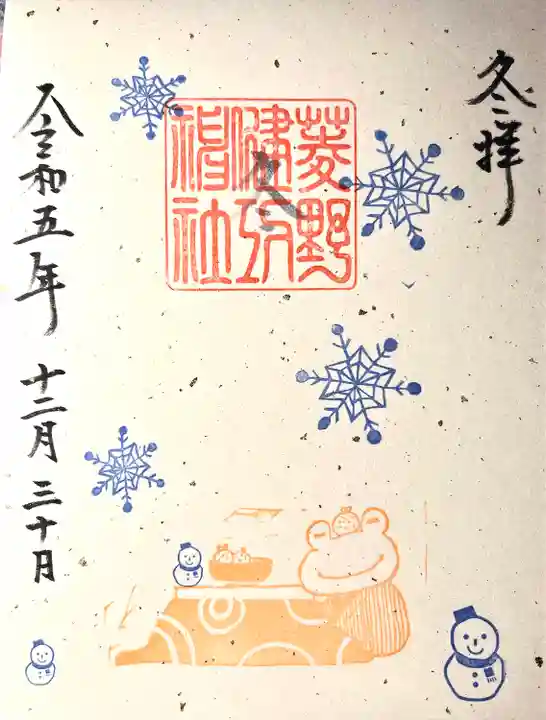 冬拝
菱野
健功
神社
令和五年 十二月三十日